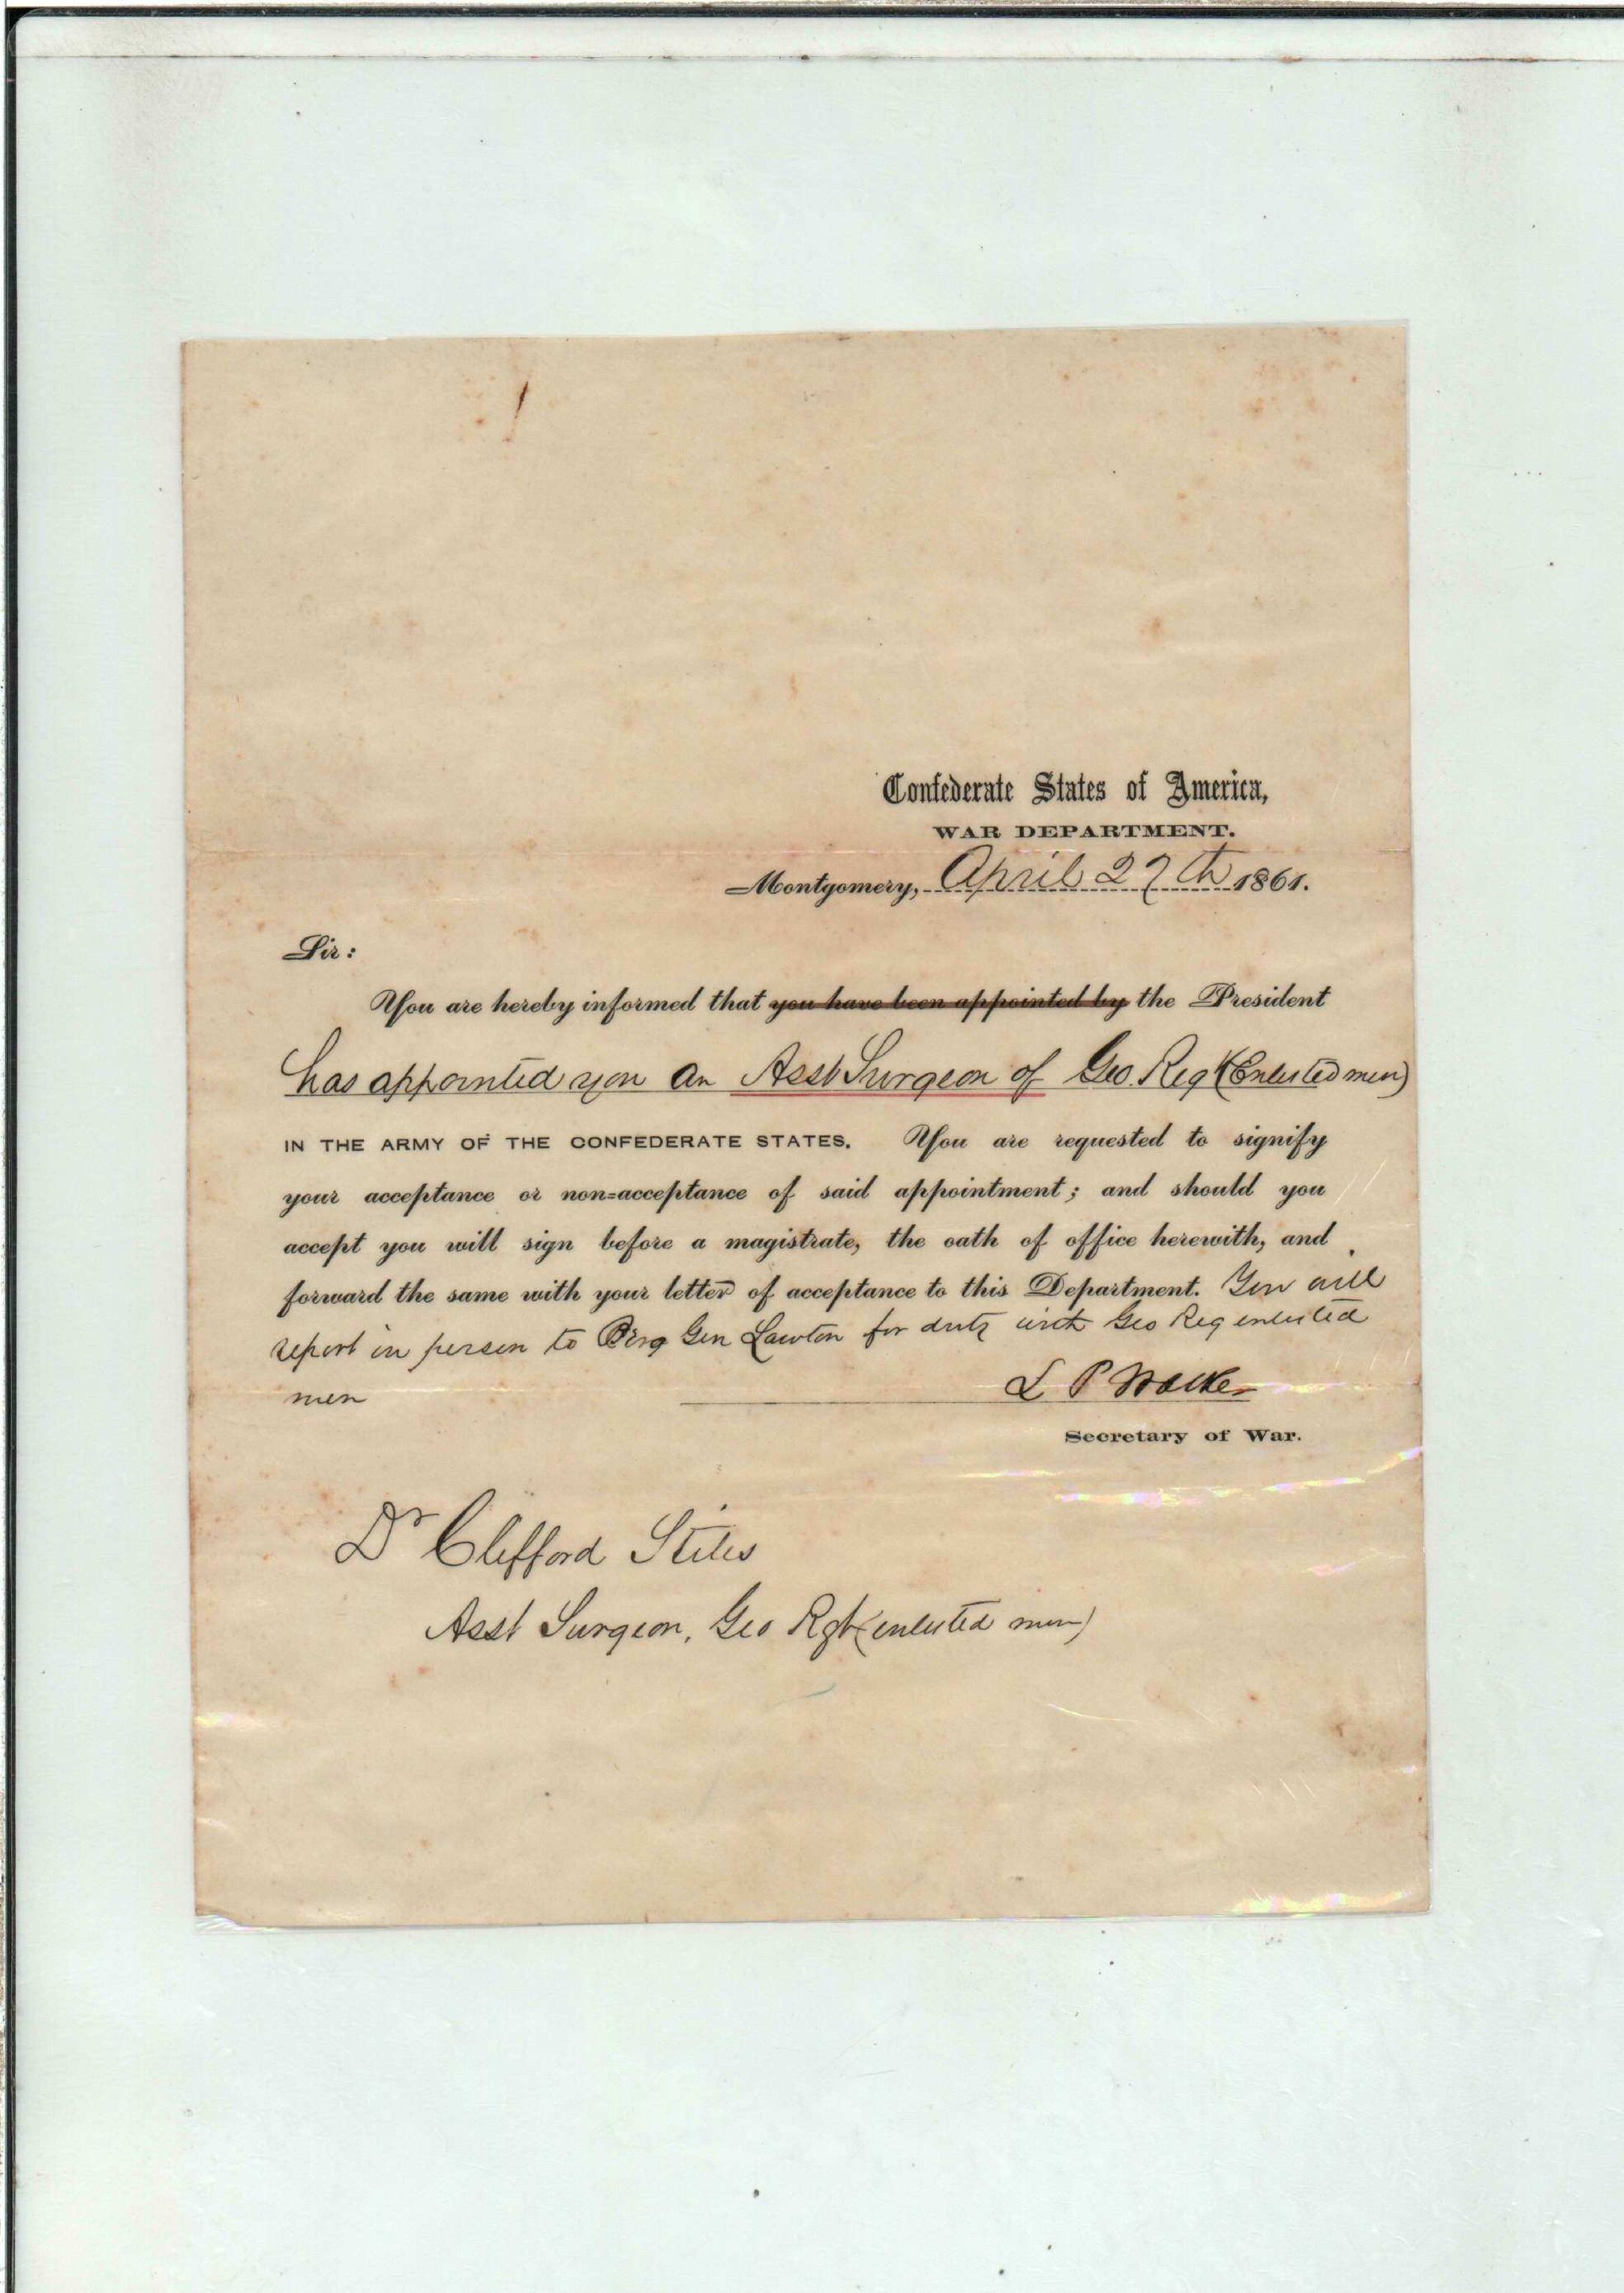 Confederate States of America,
WAR DEPARTMENT.
Montgomery, April 27th 1861.
Sir:
You are hereby informed that you have been appointed by the President
has appointed you an Asst Surgeon of Geo. Regt (Enlisted men)
IN THE ARMY OF THE CONFEDERATE STATES. You are requested to signify
your acceptance or non=acceptance of said appointment; and should you
accept you will sign before a magistrate, the oath of office herewith, and
forward the same with your letter of acceptance to this Department. You will
report in person to Brig Gen Lawton for duty with Geo Reg enlisted
men
L P Walker
Secretary of War.
Dr Clifford Stiles
Asst Surgeon, Geo Rgt (enlisted men)